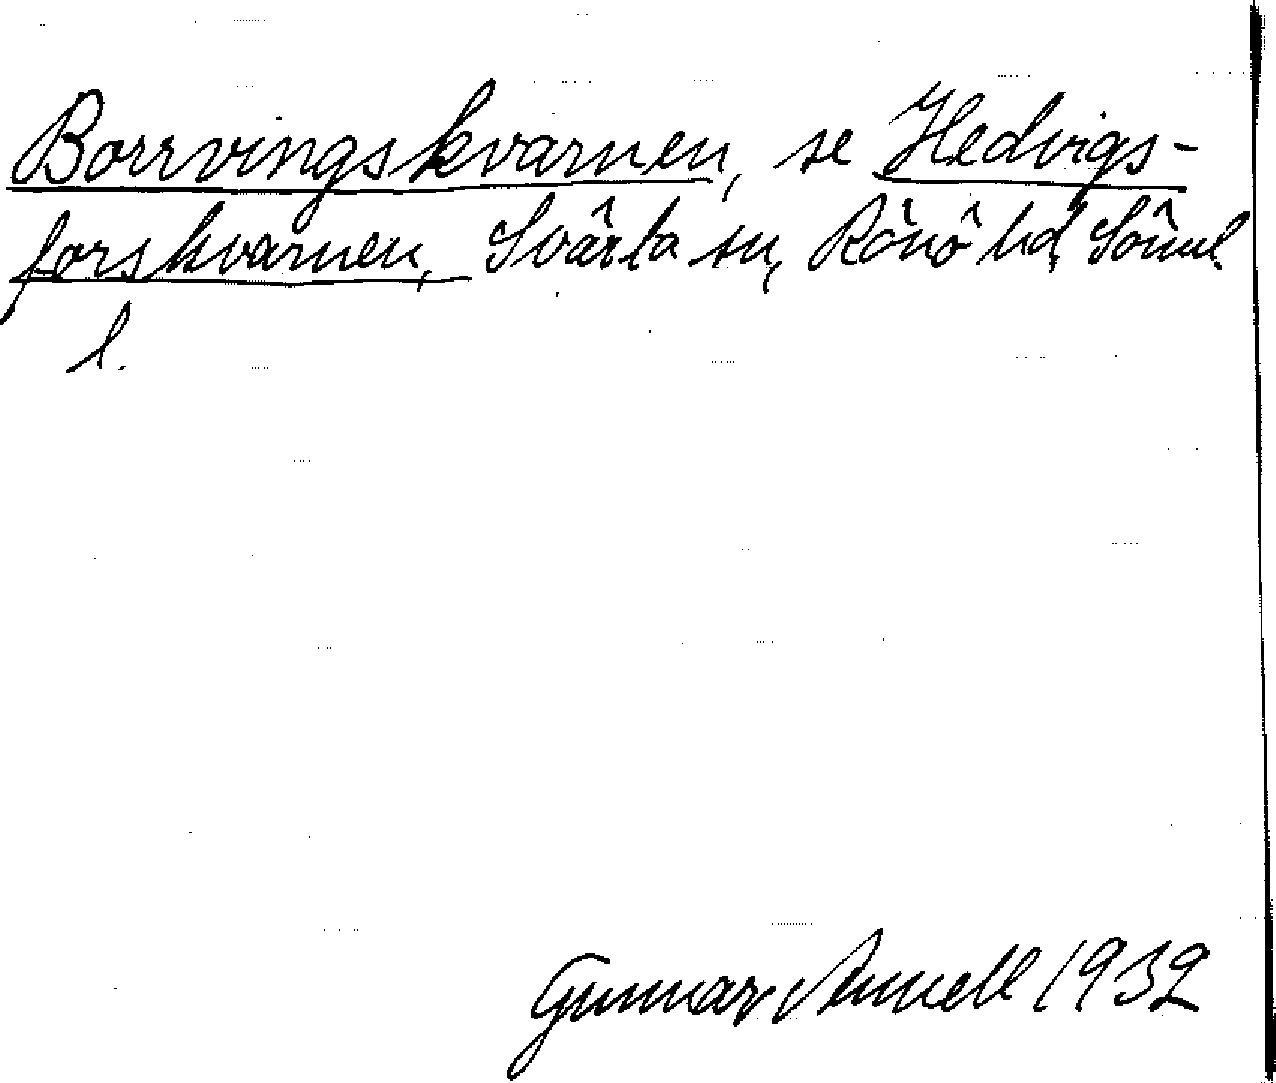 Borrvingskvarnen, se Hedvigs-
forskvarnen, Svärta sn, Rönö hd, Söml.
l.
Gunnar Annell 1932